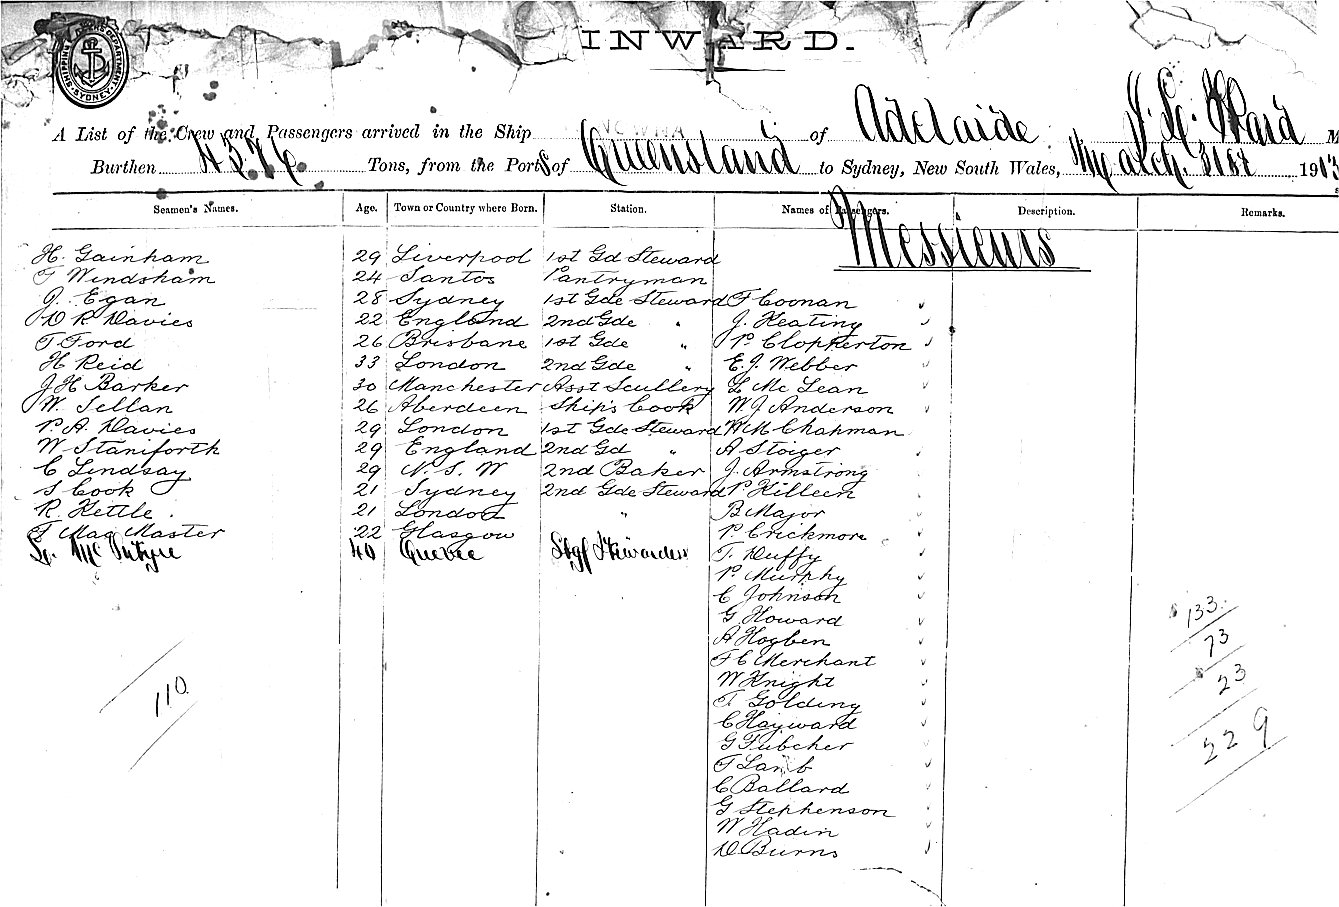 INWARD.
SHIPPING MASTERS DEPARTMENT SYDNEY
A List of the Crew and Passengers arrived in the Ship of Adelaide, M
Burthen 4376 Tons, from the Ports of Queensland to Sydney, New South Wales, March 31st 1913
Seamen's Names. Age. Town or Country where Born. Station. Names of Passengers. Description. Remarks.
Messieurs
H. Gainham 29 Liverpool 1st Gd Steward
T Windsham 24 Santos Pantryman
J. Egan 28 Sydney 1st Gde Steward F Coonan
D R Davies 22 England 2nd Gde " J. Keating
T Ford 26 Brisbane 1st Gde " P. Clopherton
H Reid 33 London 2nd Gde " E. J. Webber
J H Barker 30 Manchester Asst Scullery L Mc Lean
W. Sellan 26 Aberdeen Ship's Cook W. J Anderson
P. A. Davies 29 London 1st Gde Steward W M Chapman
W Staniforth 29 England 2nd Gd " A Stoiger
C Lindsay 29 N. S. W 2nd Baker J. Armstrong
S Cook 21 Sydney 2nd Gde Steward P. Killeen
R. Kettle. 21 London " B Major
T Mac Master 22 Glasgow P. Crickmore
Mc Intyre 40 Quebec Stewardess T. Duffy
P. Murphy
C Johnson
G Howard
A Hogben
F C Merchant
W Knight
T Golding
C Hayward
G Fubcher
T Lamb
C Ballard
G Stephenson
W Hadin
D Burns
110
133
73
23
229